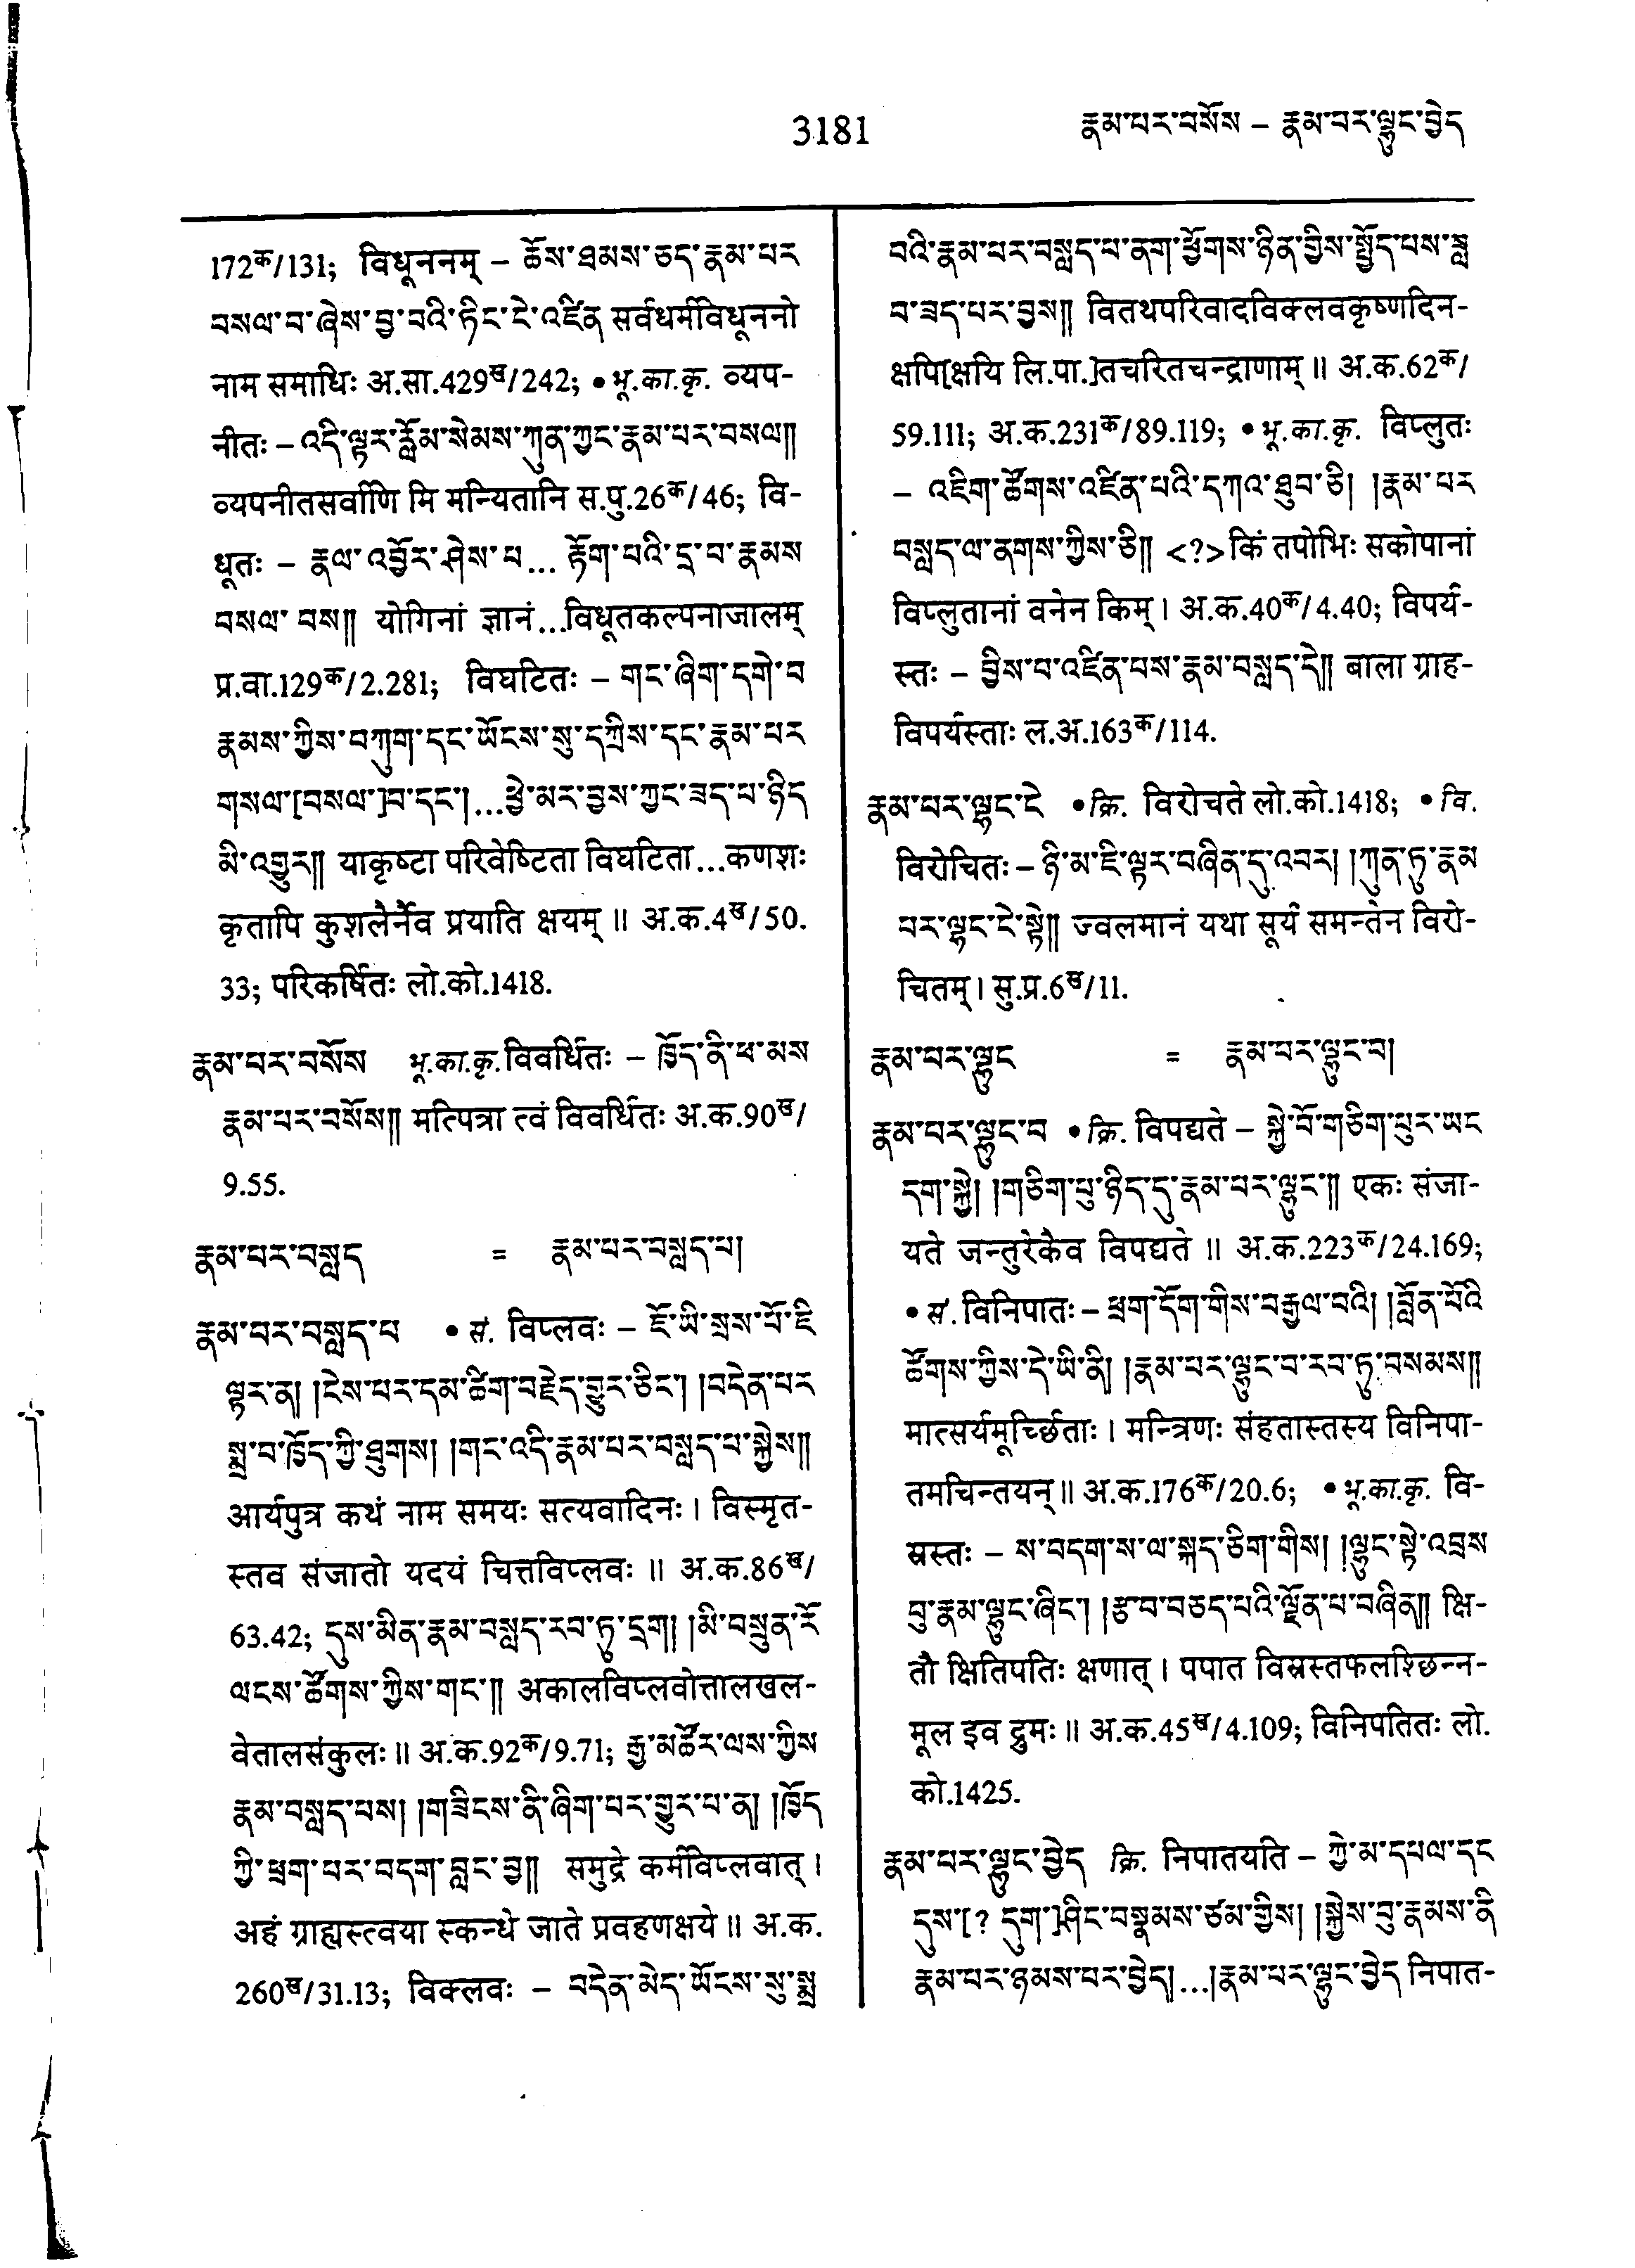 3181
རྣམ་པར་བསོས – རྣམ་པར་ལྟུང་བྱེད
172क/131; विधूननम् – ཆོས་ཐམས་ཅད་རྣམ་པར
བསལ་བ་ཞེས་བྱ་བའི་ཏིང་ངེ་འཛིན सर्वधर्मविधूननो
नाम समाधिः अ.सा.429ख/242; • भू.का.कृ. व्यप-
नीतः – འདི་ལྟར་རློམ་སེམས་ཀུན་ཀྱང་རྣམ་པར་བསལ༎
व्यपनीतसर्वाणि मि मन्यितानि स.पु.26क/46; वि-
धूतः – རྣལ་འབྱོར་ཤེས་པ... རྟོག་པའི་དྲ་བ་རྣམས
བསལ་ བས༎ योगिनां ज्ञानं...विधूतकल्पनाजालम्
प्र.वा.129क/2.281; विघटितः – གང་ཞིག་དགེ་བ
རྣམས་ཀྱིས་བཀུག་དང་ཡོངས་སུ་དཀྲིས་དང་རྣམ་པར
གསལ་[བསལ་]བ་དང་།...ཕྱེ་མར་བྱས་ཀྱང་ཟད་པ་ཉིད
མི་འགྱུར༎ याकृष्टा परिवेष्टिता विघटिता...कणशः
कृतापि कुशलैर्नैव प्रयाति क्षयम् ॥ अ.क.4ख/50.
33; परिकर्षितः लो.को.1418.
རྣམ་པར་བསོས भू.का.कृ. विवर्धितः – ཁྱོད་ནི་ཕ་མས
རྣམ་པར་བསོས༎ मत्पित्रा त्वं विवर्धितः अ.क.90ख/
9.55.
རྣམ་པར་བསླད = རྣམ་པར་བསླད་པ།
རྣམ་པར་བསླད་པ • सं. विप्लवः – ཇོ་ཡི་སྲས་པོ་ཇི
ལྟར་ན། །ངེས་པར་དམ་ཚིག་བརྗེད་གྱུར་ཅིང་། །བདེན་པར
སྨྲ་བ་ཁྱོད་ཀྱི་ཐུགས། །གང་འདི་རྣམ་པར་བསླད་པ་སྐྱེས༎
आर्यपुत्र कथं नाम समयः सत्यवादिनः । विस्मृत-
स्तव संजातो यदयं चित्तविप्लवः ॥ अ.क.86ख/
63.42; དུས་མིན་རྣམ་བསླད་རབ་ཏུ་དྲག། །མི་བསྲུན་རོ
ལངས་ཚོགས་ཀྱིས་གང་༎ अकालविप्लवोत्तालखल-
वेतालसंकुलः ॥ अ.क.92क/9.71; རྒྱ་མཚོར་ལས་ཀྱིས
རྣམ་བསླད་པས། །གཟིངས་ནི་ཞིག་པར་གྱུར་པ་ན། །ཁྱོད
ཀྱི་ཕྲག་པར་བདག་བླང་བྱ༎ समुद्रे कर्मविप्लवात् ।
अहं ग्राह्यस्त्वया स्कन्धे जाते प्रवहणक्षये ॥ अ.क.
260ख/31.13; विक्लवः – བདེན་མེད་ཡོངས་སུ་སྨྲ
བའི་རྣམ་པར་བསླད་པ་ནག་ཕྱོགས་ཉིན་གྱིས་སྤྱོད་པས་ཟླ
བ་ཟད་པར་བྱས༎ वितथपरिवादविक्लवकृष्णदिन-
क्षपि[क्षयि लि.पा.]तचरितचन्द्राणाम् ॥ अ.क.62क/
59.111; अ.क.231क/89.119; • भू.का.कृ. विप्लुतः
– འཇིག་ཚོགས་འཛིན་པའི་དཀའ་ཐུབ་ཅི། །རྣམ་པར
བསླད་ལ་ནགས་ཀྱིས་ཅི༎ <?> किं तपोभिः सकोपानां
विप्लुतानां वनेन किम् । अ.क.40क/4.40; विपर्य-
स्तः – བྱིས་པ་འཛིན་པས་རྣམ་བསླད་དེ༎ बाला ग्राह-
विपर्यस्ताः ल.अ.163क/114.
རྣམ་པར་ལྷང་ངེ • क्रि. विरोचते लो.को.1418; • वि.
विरोचितः – ཉི་མ་ཇི་ལྟར་བཞིན་དུ་འབར། །ཀུན་ཏུ་རྣམ
པར་ལྷང་ངེ་སྟེ༎ ज्वलमानं यथा सूर्यं समन्तेन विरो-
चितम् । सु.प्र.6ख/11.
རྣམ་པར་ལྟུང = རྣམ་པར་ལྟུང་བ།
རྣམ་པར་ལྟུང་བ • क्रि. विपद्यते – སྐྱེ་བོ་གཅིག་པུར་ཡང
དག་སྐྱེ། །གཅིག་པུ་ཉིད་དུ་རྣམ་པར་ལྟུང་༎ एकः संजा-
यते जन्तुरेकैव विपद्यते ॥ अ.क.223क/24.169;
• सं. विनिपातः – ཕྲག་དོག་གིས་བརྒྱལ་བའི། །བློན་པོའི
ཚོགས་ཀྱིས་དེ་ཡི་ནི། །རྣམ་པར་ལྟུང་བ་རབ་ཏུ་བསམས༎
मात्सर्यमूर्च्छिताः । मन्त्रिणः संहतास्तस्य विनिपा-
तमचिन्तयन् ॥ अ.क.176क/20.6; • भू.का.कृ. वि-
स्रस्तः – ས་བདག་ས་ལ་སྐད་ཅིག་གིས། །ལྟུང་སྟེ་འབྲས
བུ་རྣམ་ལྟུང་ཞིང་། །རྩ་བ་བཅད་པའི་ལྗོན་པ་བཞིན༎ क्षि-
तौ क्षितिपतिः क्षणात् । पपात विस्रस्तफलश्छिन्न-
मूल इव द्रुमः ॥ अ.क.45ख/4.109; विनिपतितः लो.
को.1425.
རྣམ་པར་ལྟུང་བྱེད क्रि. निपातयति – ཀྱེ་མ་དཔལ་དང
དུས་[? དུག་]ཤིང་བསྣམས་ཙམ་གྱིས། །སྐྱེས་བུ་རྣམས་ནི
རྣམ་པར་ཉམས་པར་བྱེད།...།རྣམ་པར་ལྟུང་བྱེད निपात-